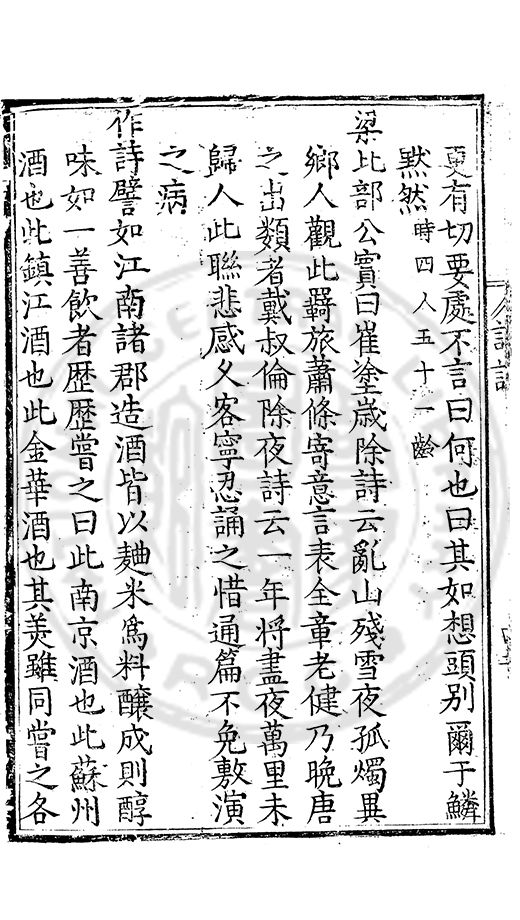 更有切要處不言曰何也曰其如想頭别爾于鱗
默然時四人五十一齡
梁比部公實曰崔塗歲除詩云亂山殘雪夜孤燭異
鄉人觀此羇旅蕭條寄意言表全章老健乃晚唐
之出類者戴叔倫除夜詩云一年將盡夜萬里未
歸人此聯悲感久客寧忍誦之惜通篇不免敷演
之病
作詩譬如江南諸郡造酒皆以麯米爲料釀成則醇
味如一善飲者歷歷嘗之曰此南京酒也此蘇州
酒也此鎮江酒也此金華酒也其美雖同嘗之各